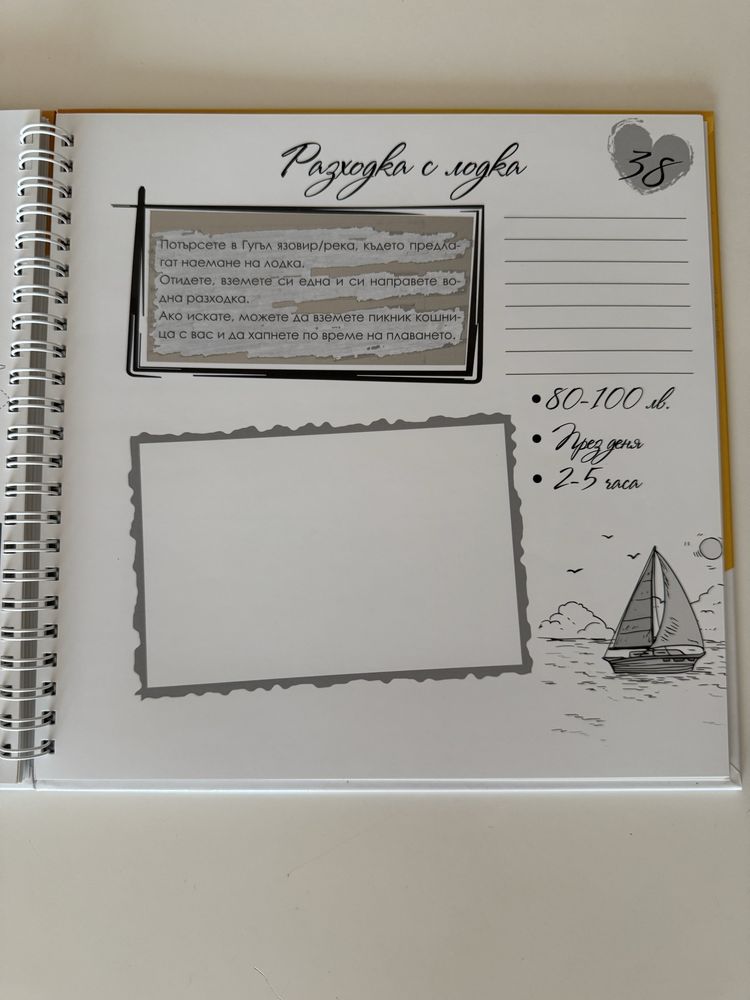 Разходка с лодка
38
Потърсете в Гугъл язовир/река, където предла-
гат наемане на лодка.
Отидете, вземете си една и си направете во-
дна разходка.
Ако искате, можете да вземете пикник кошни-
ца с вас и да хапнете по време на плаването.
• 80-100 лв.
• През деня
• 2-5 часа